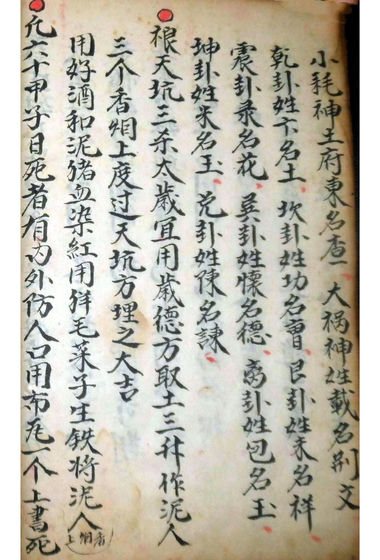 小耗神王府東名查一 大祸神姓載名荆文
乾卦姓卞名土 坎卦姓功名曹 艮卦姓未名祥
震卦录名花 巽卦姓懷名德 离卦姓包名玉
坤卦姓米名玉 兑卦姓陳名諫
禳天坑三杀太歲宜用歲德方取土三升作泥人
三个香烟上度过天坑方埋之大吉
用好酒和泥猪血染紅用羊毛菜子生鉄将泥人
香烟上
凢六十甲子日死者有内外防人口用布瓦一个上書死